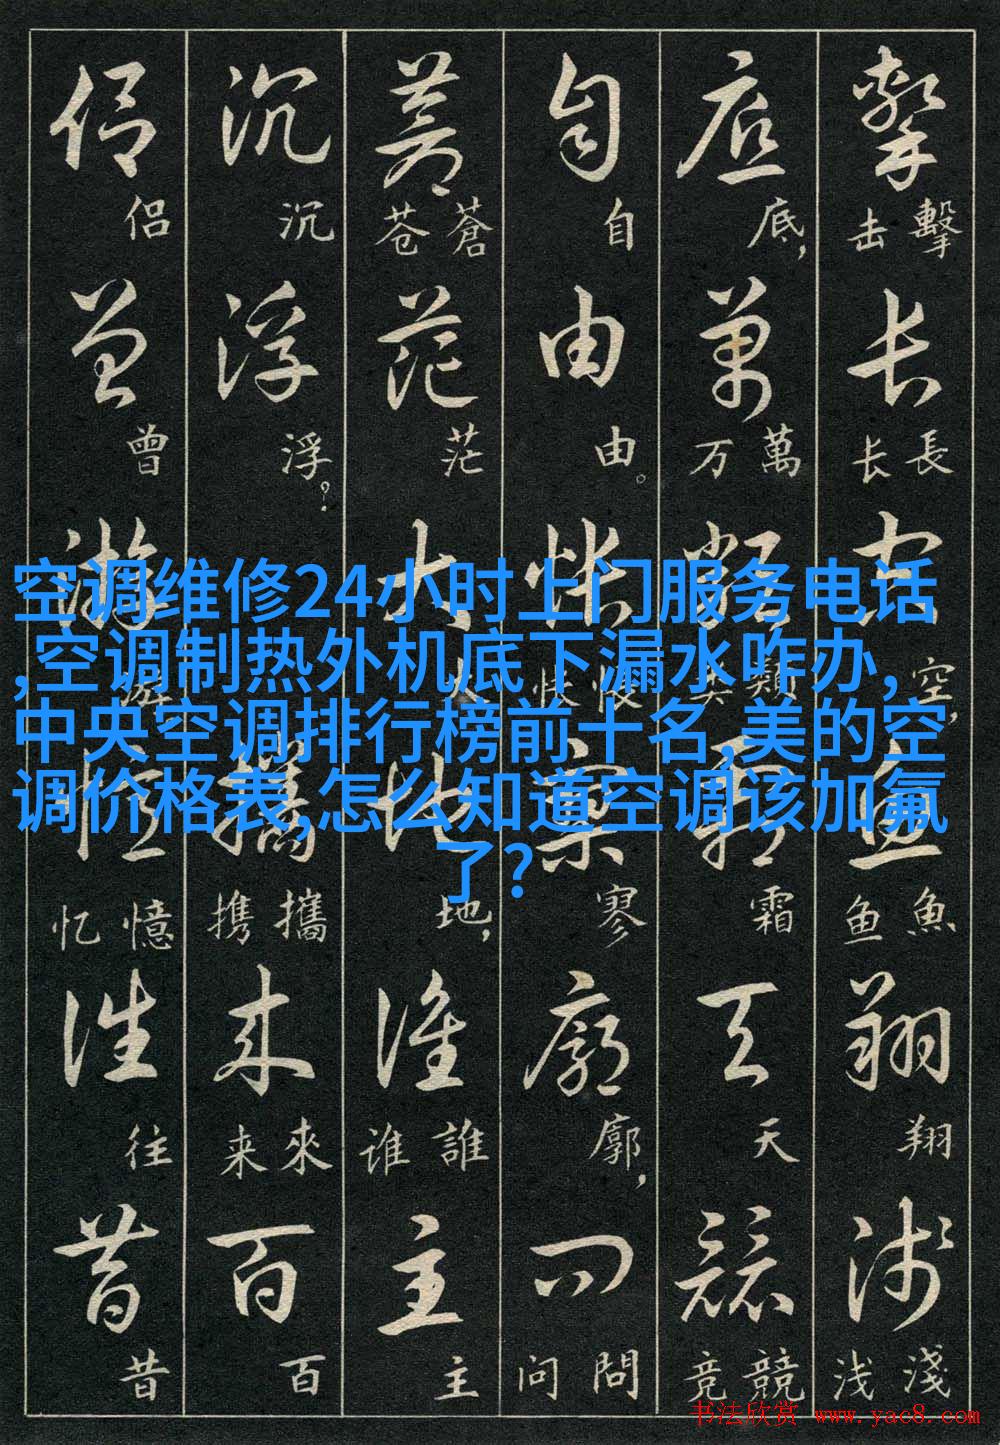 空调维修24小时上门服务电话
,空调制热外机底下漏水咋办,
中央空调排行榜前十名,美的空
调价格表,怎么知道空调该加氟
了?
擊长空鱼翔浅
擊击 長长 空, 魚鱼 翔 淺浅
底万类霜天竞
底, 萬万 類类 霜 天 競竞
自由怅寥廓问
自 由。 悵怅 寥 廓, 問问
苍茫大地谁主
蒼苍 茫 大 地, 誰谁 主
沉浮携来百
沉 浮? 攜携 來来 百
侣曾游忆往昔
侣 曾 游。 憶忆 往 昔
书法欣赏 www.yac8.com